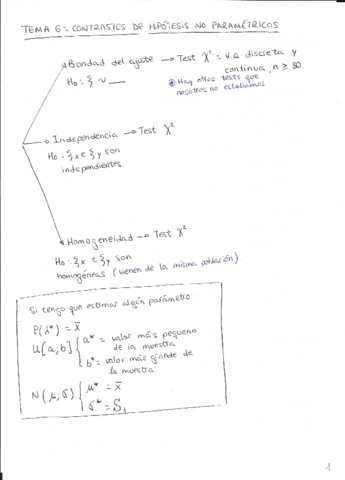 TEMA 6: CONTRASTES DE HIPÓTESIS NO PARAMÉTRICOS
Bondad del ajuste → Test χ² = v.a discreta y
continua, n ≥ 30.
H₀: ξ ~ __
* Hay otros tests que
nosotros no estudiamos
Independencia → Test χ²
H₀: ξx e ξy son
independientes.
Homogeneidad → Test χ²
H₀: ξx e ξy son
homogéneas (vienen de la misma población).
Si tengo que estimar algún parámetro
P(λ*) = x̄
U[a;b] { a* = valor más pequeño
de la muestra
b* = valor más grande de
la muestra
N(μ,σ) { μ* = x̄
σ* = S₁
1